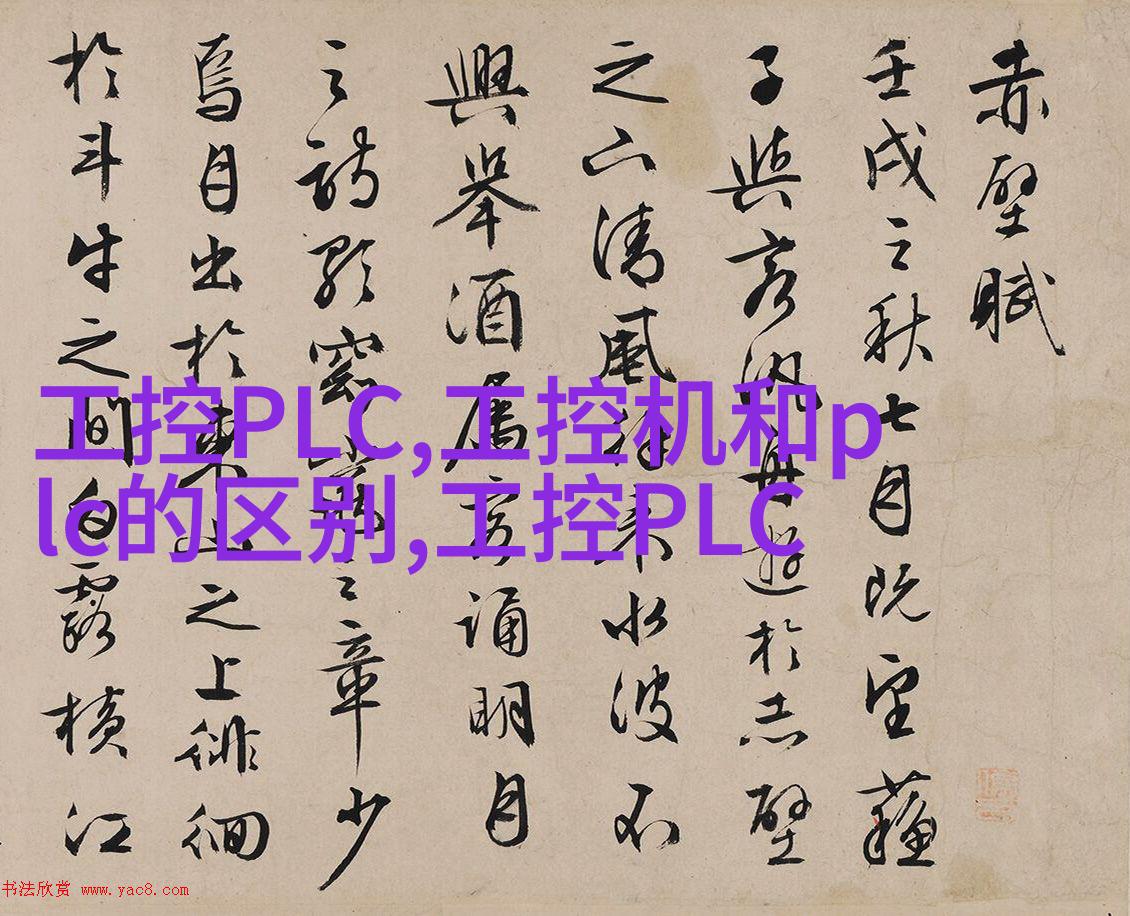 赤壁賦
壬戌之秋七月既望蘇
子與客汎舟遊於赤壁
之下清風徐來水波不
興舉酒屬客誦明月
之詩歌窈窕之章少
焉月出於東山之上徘徊
於斗牛之間白露橫江
工控PLC,工控机和p
lc的区别,工控PLC
书法欣赏 www.yac8.com